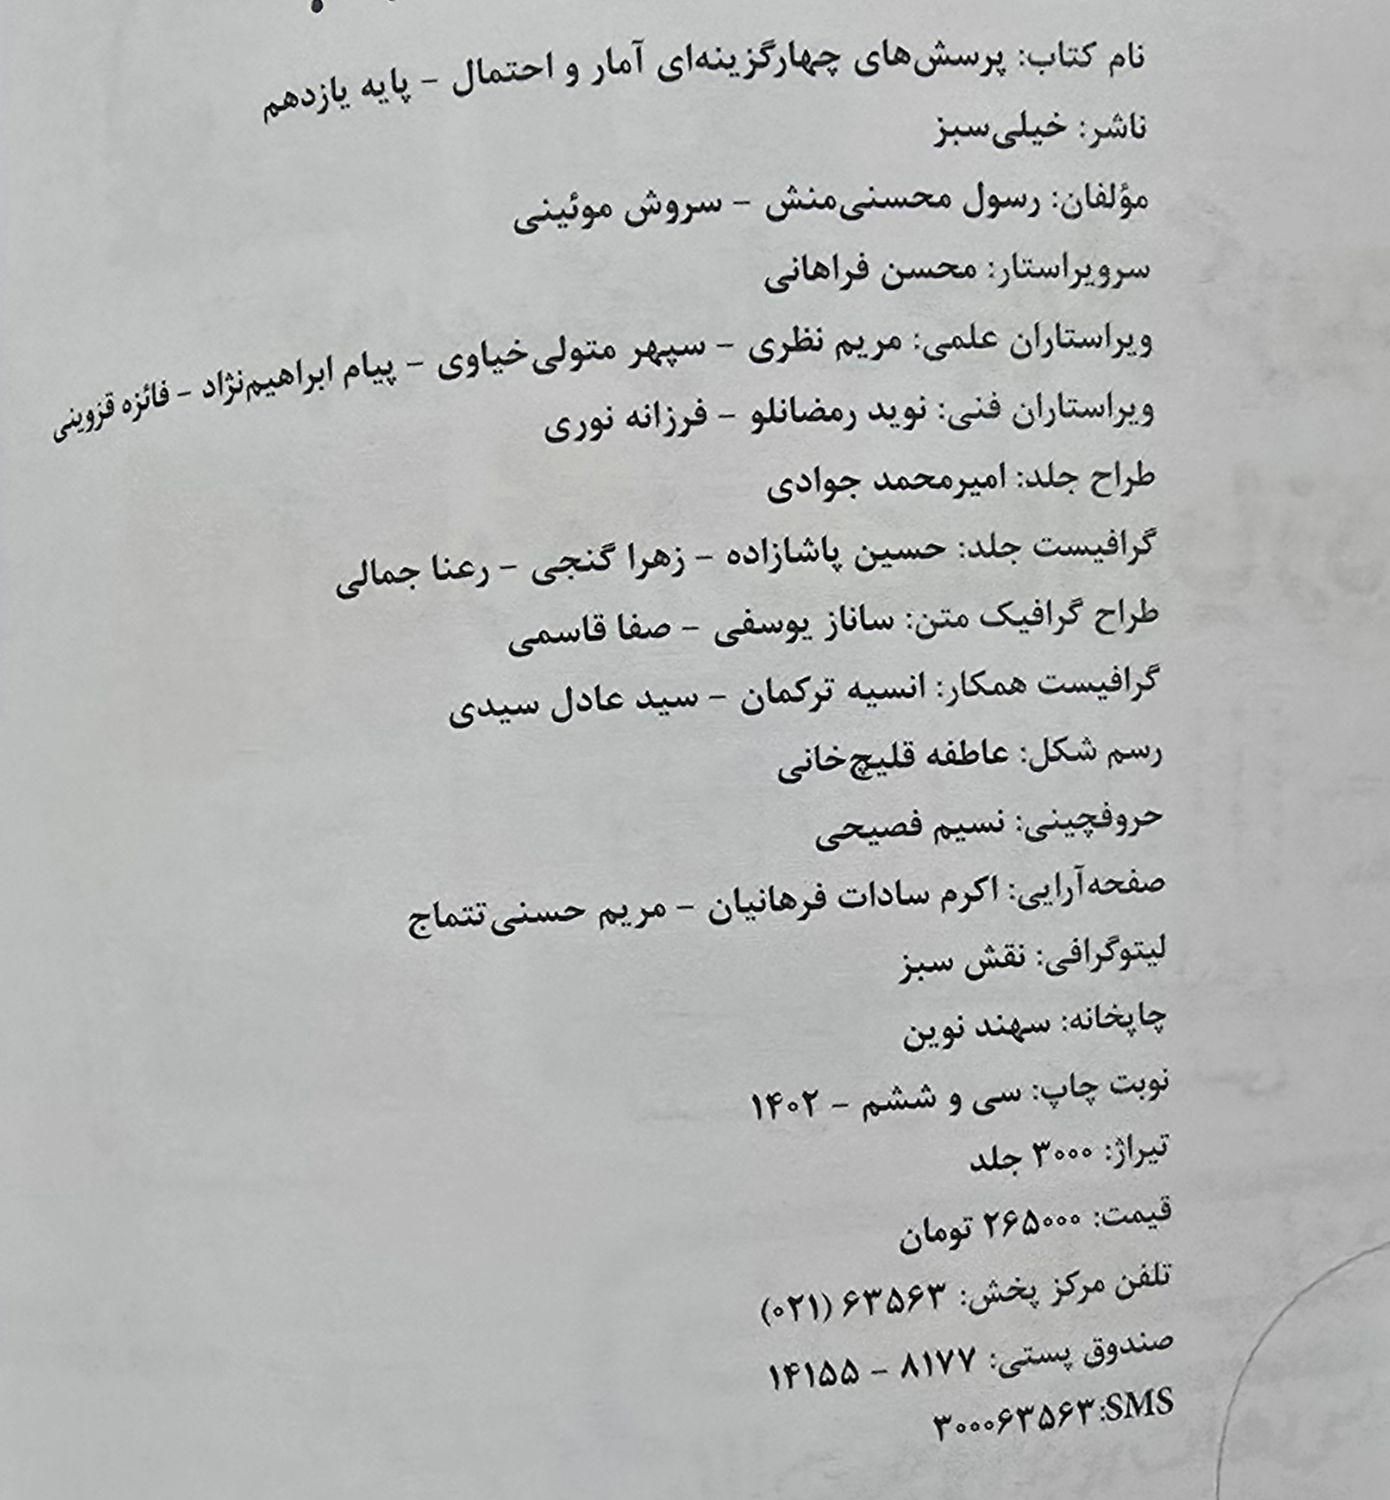 نام کتاب: پرسش‌های چهارگزینه‌ای آمار و احتمال – پایه یازدهم
ناشر: خیلی‌سبز
مؤلفان: رسول محسنی‌منش – سروش موئینی
سرویراستار: محسن فراهانی
ویراستاران علمی: مریم نظری – سپهر متولی‌خیاوی – پیام ابراهیم‌نژاد – فائزه قزوینی
ویراستاران فنی: نوید رمضانلو – فرزانه نوری
طراح جلد: امیرمحمد جوادی
گرافیست جلد: حسین پاشازاده – زهرا گنجی – رعنا جمالی
طراح گرافیک متن: ساناز یوسفی – صفا قاسمی
گرافیست همکار: انسیه ترکمان – سید عادل سیدی
رسم شکل: عاطفه قلیچ‌خانی
حروفچینی: نسیم فصیحی
صفحه‌آرایی: اکرم سادات فرهانیان – مریم حسنی‌تتماج
لیتوگرافی: نقش سبز
چاپخانه: سهند نوین
نوبت چاپ: سی و ششم – ۱۴۰۲
تیراژ: ۳۰۰۰ جلد
قیمت: ۲۶۵۰۰۰ تومان
تلفن مرکز پخش: ۶۳۵۶۳ (۰۲۱)
صندوق پستی: ۸۱۷۷ – ۱۴۱۵۵
SMS:۳۰۰۰۶۳۵۶۳